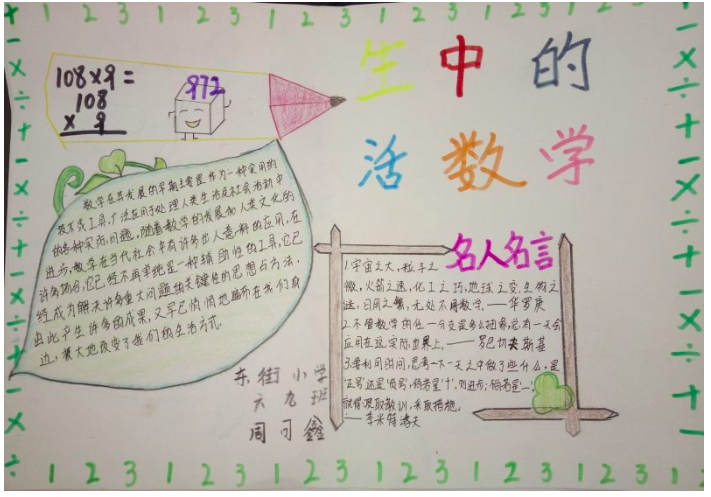 1 2 3 1 2 3 1 2 3 1 2 3 1 2 3
108×9=
108
× 9
972
生中的
活数学
数学在其发展的早期主要是作为一种实用的
技术或工具,广泛应用于处理人类生活及社会活动中
的各种实际问题。随着数学的发展和人类文化的
进步,数学在当代社会中有许多出人意料的应用,在
许多场合,它已经不再单纯是一种辅助性的工具,它已
经成为解决许多重大问题的关键性的思想与方法,
由此产生许多的成果,又早已悄悄地遍布在我们身
边,极大地改变了我们的生活方式.
名人名言
1.宇宙之大,粒子之
微,火箭之速,化工之巧,地球之变,生物之
谜,日用之繁,无处不用数学.——华罗庚
2.不管数学的任一分支是多么抽象,总有一天会
应用在这实际世界上.——罗巴切夫斯基
3.要利用时间,思考一下一天之中做了些什么,是
"正号"还是"负号",倘若是"+",则进步;倘若是"—",
就得吸取教训,采取措施.
——季米特洛夫
东街小学
六九班
周可鑫
1 2 3 1 2 3 1 2 3 1 2 3 1 2 3 1 2 3